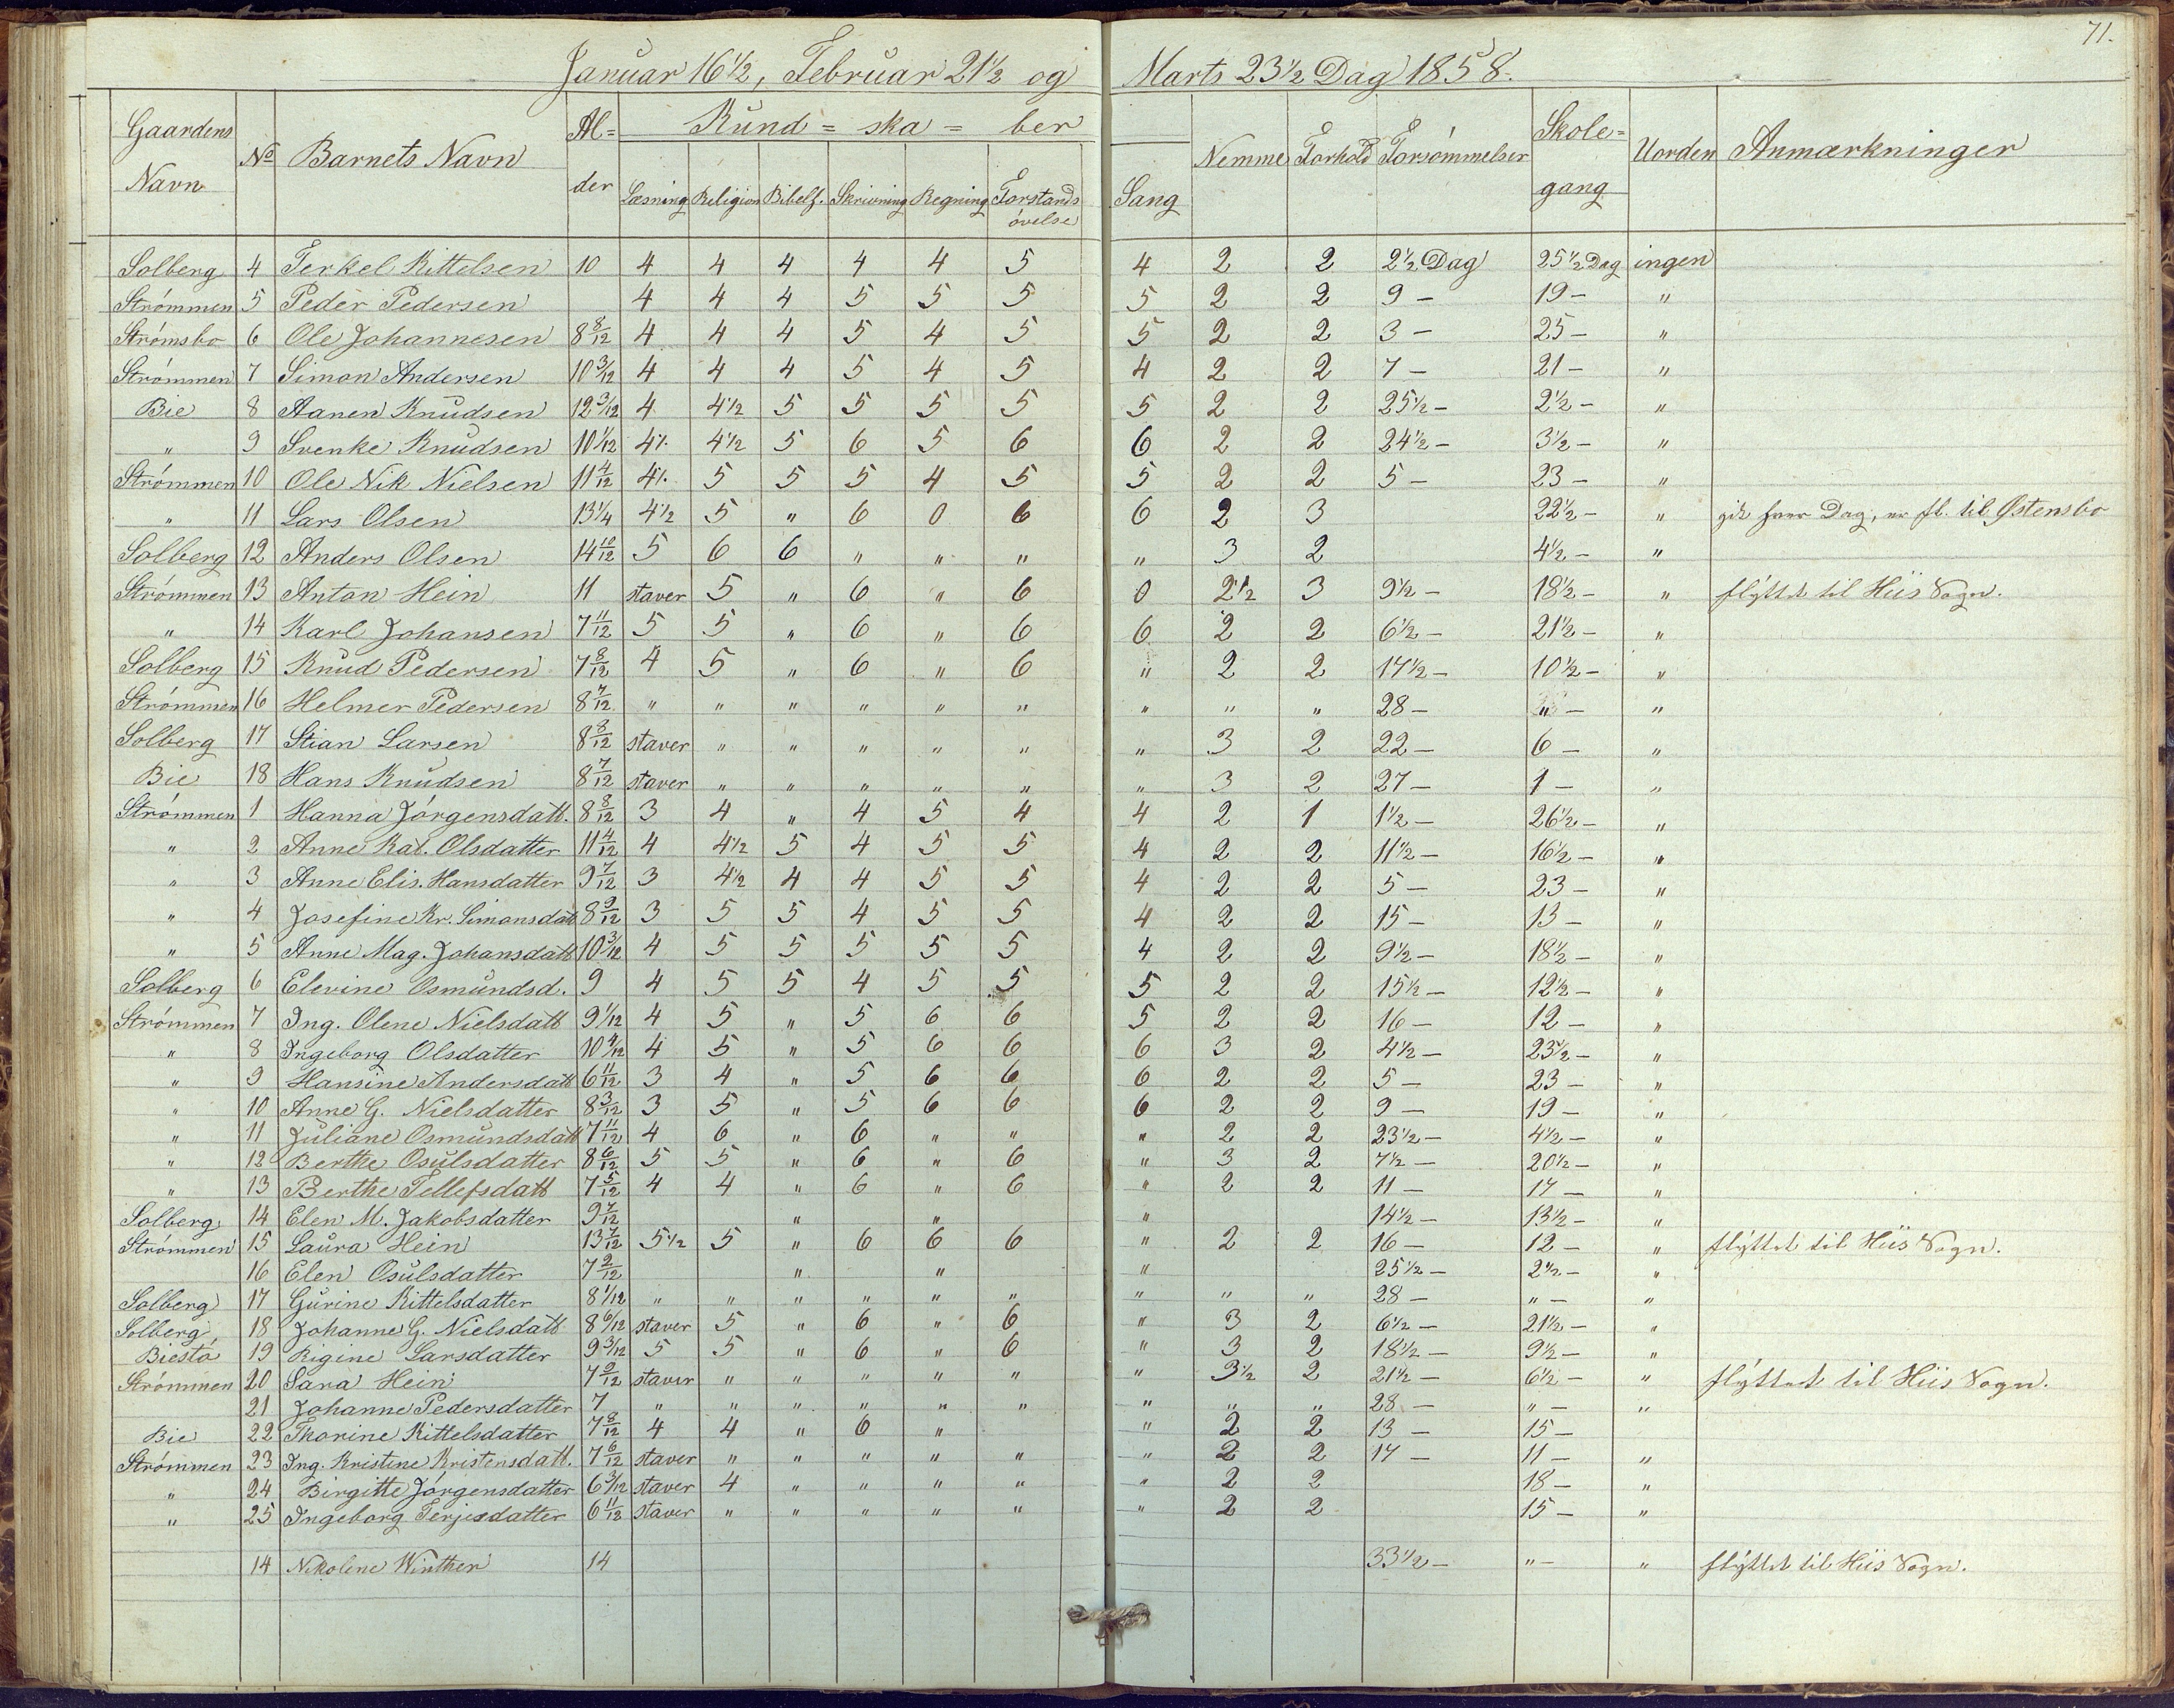 71.
Januar 16 1/2, Februar 21 1/2 og Marts 23 1/2 Dag 1858.
Gaardens Navn No Barnets Navn Al=der Kund=ska=ber Nemme Forhold Forsømmelser Skole=gang Uorden Anmærkninger
Læsning Religion Bibelf. Skrivning Regning Forstands øvelse Sang
Solberg 4 Terkel Kittelsen 10 4 4 4 4 4 5 4 2 2 2 1/2 Dag 25 1/2 Dag ingen
Strømmen 5 Peder Pedersen 4 4 4 5 5 5 5 2 2 9 – 19 – "
Strømsbo 6 Ole Johannesen 8 8/12 4 4 4 5 4 5 5 2 2 3 – 25 – "
Strømmen 7 Simon Andersen 10 3/12 4 4 4 5 4 5 4 2 2 7 – 21 – "
Bie 8 Aanen Knudsen 12 3/12 4 4 1/2 5 5 5 5 5 2 2 25 1/2 – 2 1/2 – "
" 9 Svenke Knudsen 10 1/12 4 1/. 4 1/2 5 6 5 6 6 2 2 24 1/2 – 3 1/2 – "
Strømmen 10 Ole Nik Nielsen 11 4/12 4 1/. 5 5 5 4 5 5 2 2 5 – 23 – "
" 11 Lars Olsen 13 1/4 4 1/2 5 " 6 0 6 6 2 3 22 1/2 – " gik hver Dag, er fl. til Østensbo
Solberg 12 Anders Olsen 14 10/12 5 6 6 " " " " 3 2 4 1/2 – "
Strømmen 13 Anton Hein 11 staver 5 " 6 " 6 0 2 1/2 3 9 1/2 – 18 1/2 – " flyttet til Hiis Sogn.
" 14 Karl Johansen 7 11/12 5 5 " 6 " 6 6 2 2 6 1/2 – 21 1/2 – "
Solberg 15 Knud Pedersen 7 8/12 4 5 " 6 " 6 " 2 2 17 1/2 – 10 1/2 – "
Strømmen 16 Helmer Pedersen 8 7/12 " " " " " " " " " 28 – " – "
Solberg 17 Stian Larsen 8 8/12 staver " " " " " " 3 2 22 – 6 – "
Bie 18 Hans Knudsen 8 7/12 staver " " " " " " 3 2 27 – 1 – "
Strømmen 1 Hanna Jørgensdatt. 8 8/12 3 4 " 4 5 4 4 2 1 1 1/2 – 26 1/2 – "
" 2 Anne Kat. Olsdatter 11 4/12 4 4 1/2 5 4 5 5 4 2 2 11 1/2 – 16 1/2 – "
" 3 Anne Elis. Hansdatter 9 7/12 3 4 1/2 4 4 5 5 4 2 2 5 – 23 – "
" 4 Josefine Kr. Simonsdatt 8 9/12 3 5 5 4 5 5 4 2 2 15 – 13 – "
" 5 Anne Mag. Johansdatt 10 3/12 4 5 5 5 5 5 4 2 2 9 1/2 – 18 1/2 – "
Solberg 6 Elevine Osmundsd. 9 4 5 5 4 5 5 5 2 2 15 1/2 – 12 1/2 – "
Strømmen 7 Ing. Olene Nielsdatt 9 1/12 4 5 " 5 6 6 5 2 2 16 – 12 – "
" 8 Ingeborg Olsdatter 10 4/12 4 5 " 5 6 6 6 3 2 4 1/2 – 23 1/2 – "
" 9 Hansine Andersdatt 6 11/12 3 4 " 5 6 6 6 2 2 5 – 23 – "
" 10 Anne G. Nielsdatter 8 3/12 3 5 " 5 6 6 6 2 2 9 – 19 – "
" 11 Juliane Osmundsdatt 7 11/12 4 6 " 6 " " " 2 2 23 1/2 – 4 1/2 – "
" 12 Berthe Osulsdatter 8 6/12 5 5 " 6 " 6 " 3 2 7 1/2 – 20 1/2 – "
" 13 Berthe Tellefsdatt 7 5/12 4 4 " 6 " 6 " 2 2 11 – 17 – "
Solberg 14 Elen M. Jakobsdatter 9 7/12 " " " 14 1/2 – 13 1/2 – "
Strømmen 15 Laura Hein 13 7/12 5 1/2 5 " 6 6 6 " 2 2 16 – 12 – " flyttet til Hiis Sogn.
16 Elen Osulsdatter 7 2/12 " " " 25 1/2 – 2 1/2 – "
Solberg 17 Gurine Kittelsdatter 8 1/12 " " " " " " " " " 28 – " – "
Solberg, 18 Johanne G. Nielsdatt 8 6/12 staver 5 " 6 " 6 " 3 2 6 1/2 – 21 1/2 – "
Biestø 19 Rigine Larsdatter 9 3/12 5 5 " 6 " 6 " 3 2 18 1/2 – 9 1/2 – "
Strømmen 20 Sara Hein 7 9/12 staver " " " " " " 3 1/2 2 21 1/2 – 6 1/2 – " flyttet til Hiis Sogn.
21 Johanne Pedersdatter 7 " " " " " " " " " 28 – " – "
Bie 22 Thorine Kittelsdatter 7 8/12 4 4 " 6 " " 2 2 13 – 15 –
Strømmen 23 Ing. Kristine Kristensdatt. 7 6/12 staver " " " " " " 2 2 17 – 11 – "
" 24 Birgitte Jørgensdatter 6 3/12 staver 4 " " " " " 2 2 18 – "
" 25 Ingeborg Terjesdatter 6 11/12 staver " " " " " " 2 2 15 – "
14 Nikoline Winther 14 33 1/2 – " – " flyttet til Hiis Sogn.